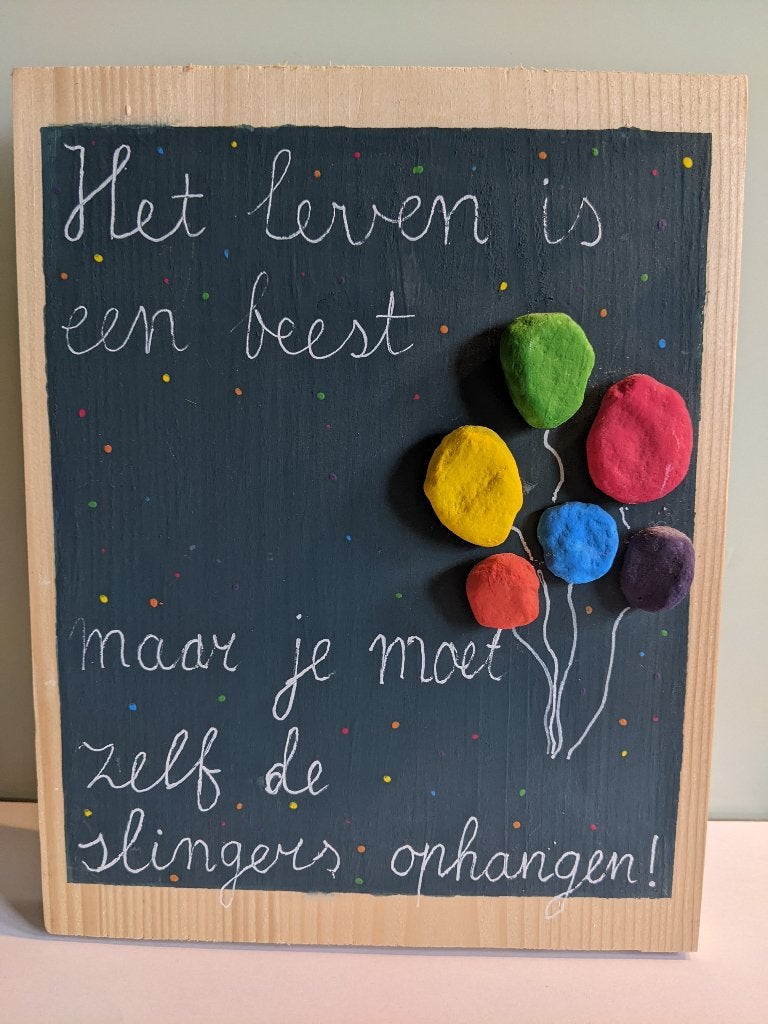 Het leven is
een beest
maar je moet
zelf de
slingers ophangen!